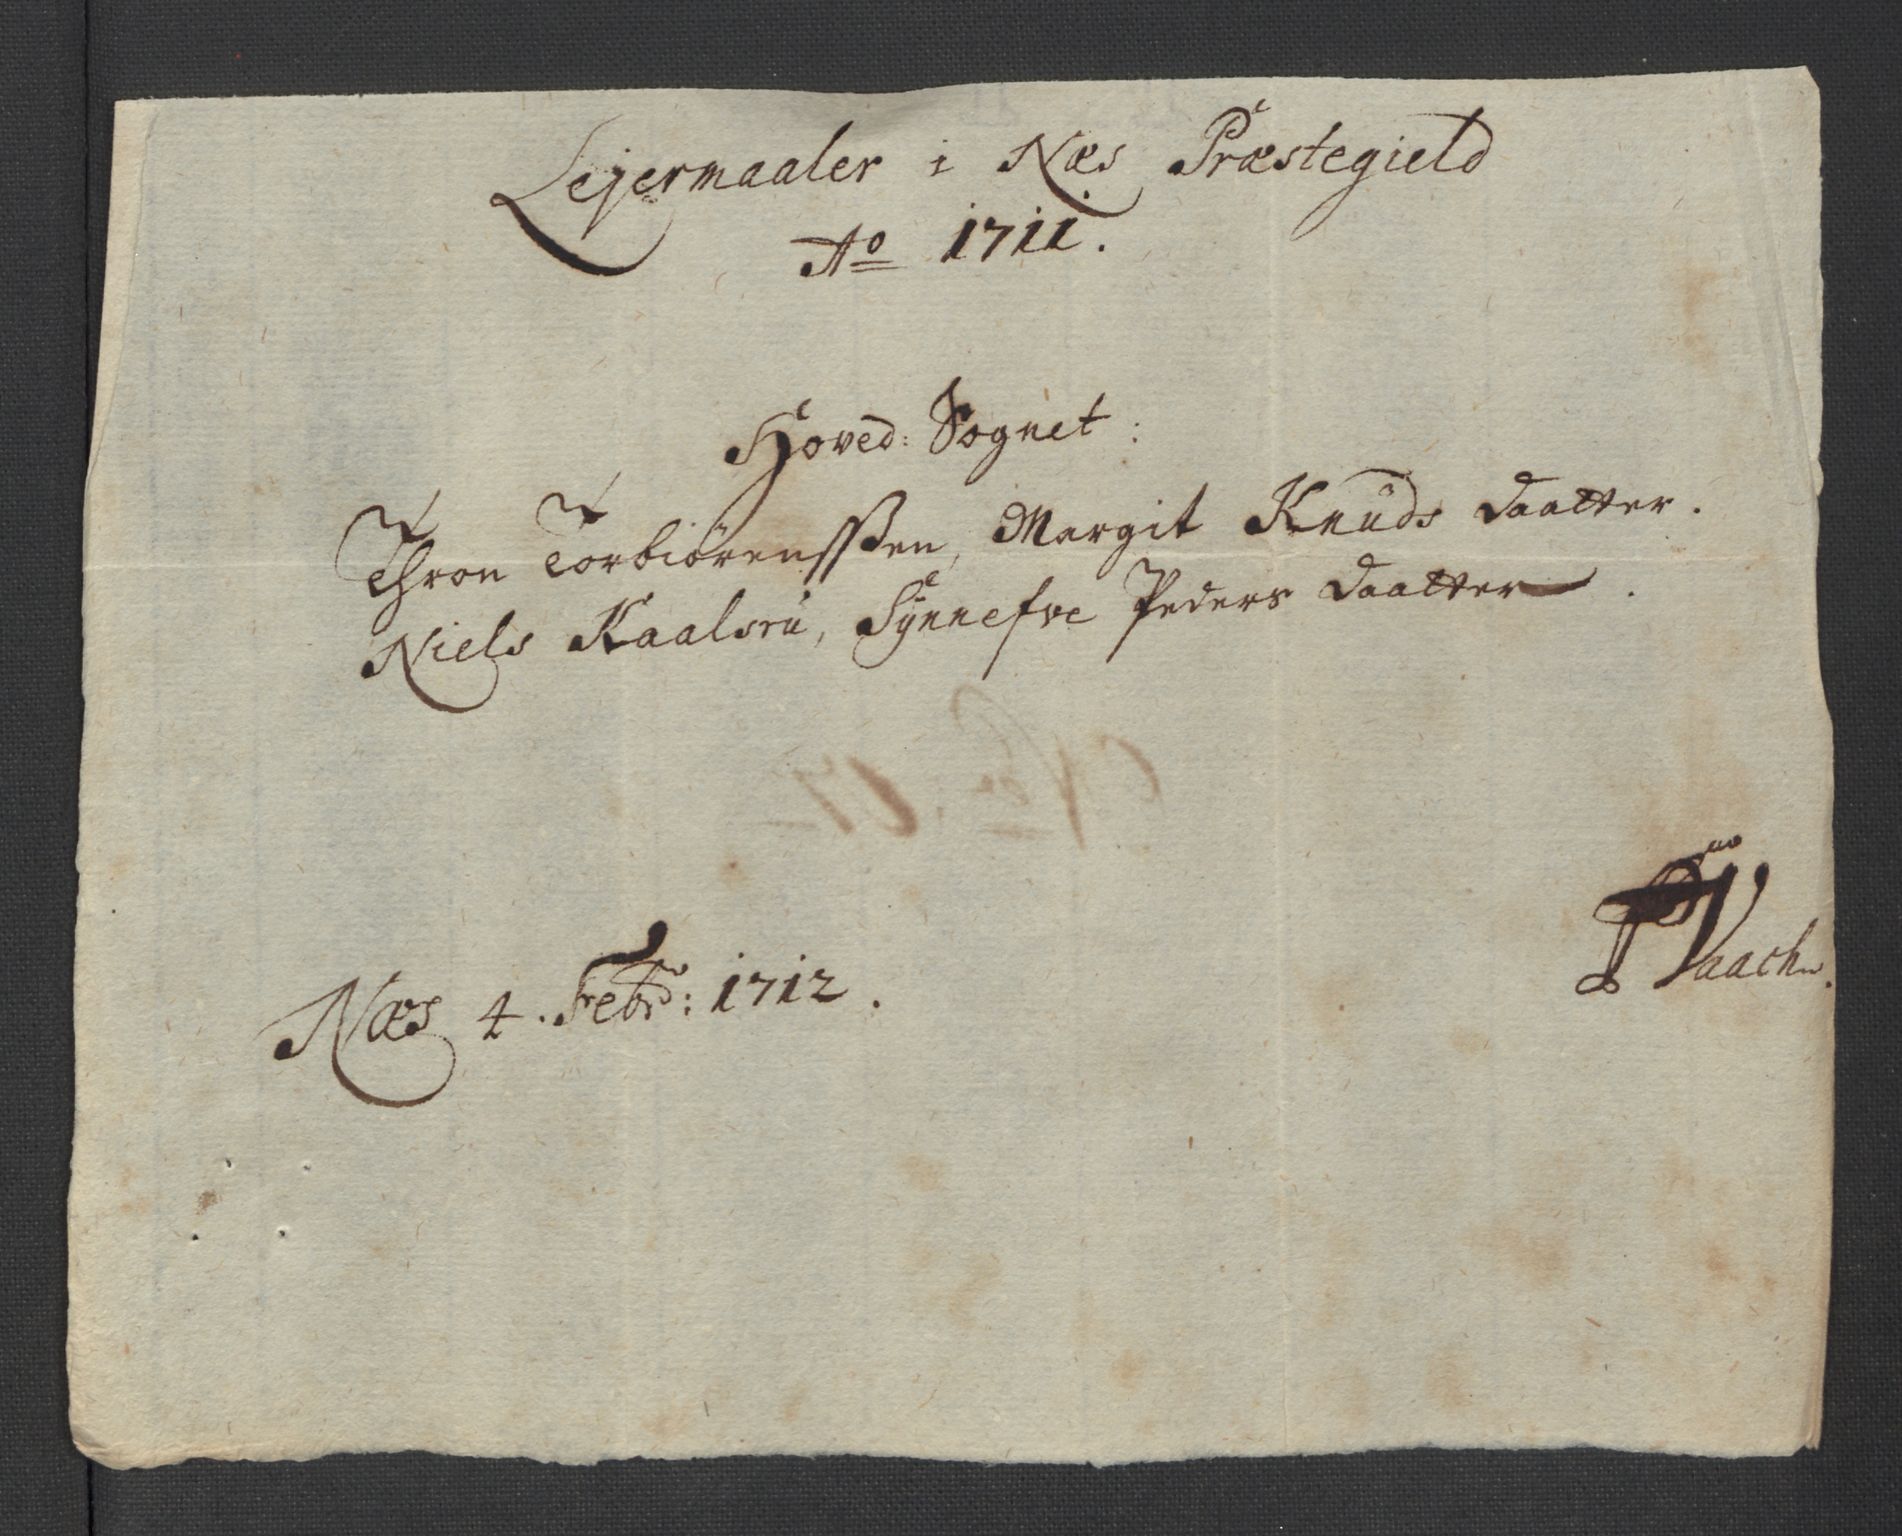 Lejermaaler i Næs Præstegield
Ao 1711.
Hoved: Sognet:
Thron Torbiörensßen, Margit Knuds Daatter.
Niels Kaalsru, Synnefve Peders Daatter.
Næs 4. Febr: 1712.